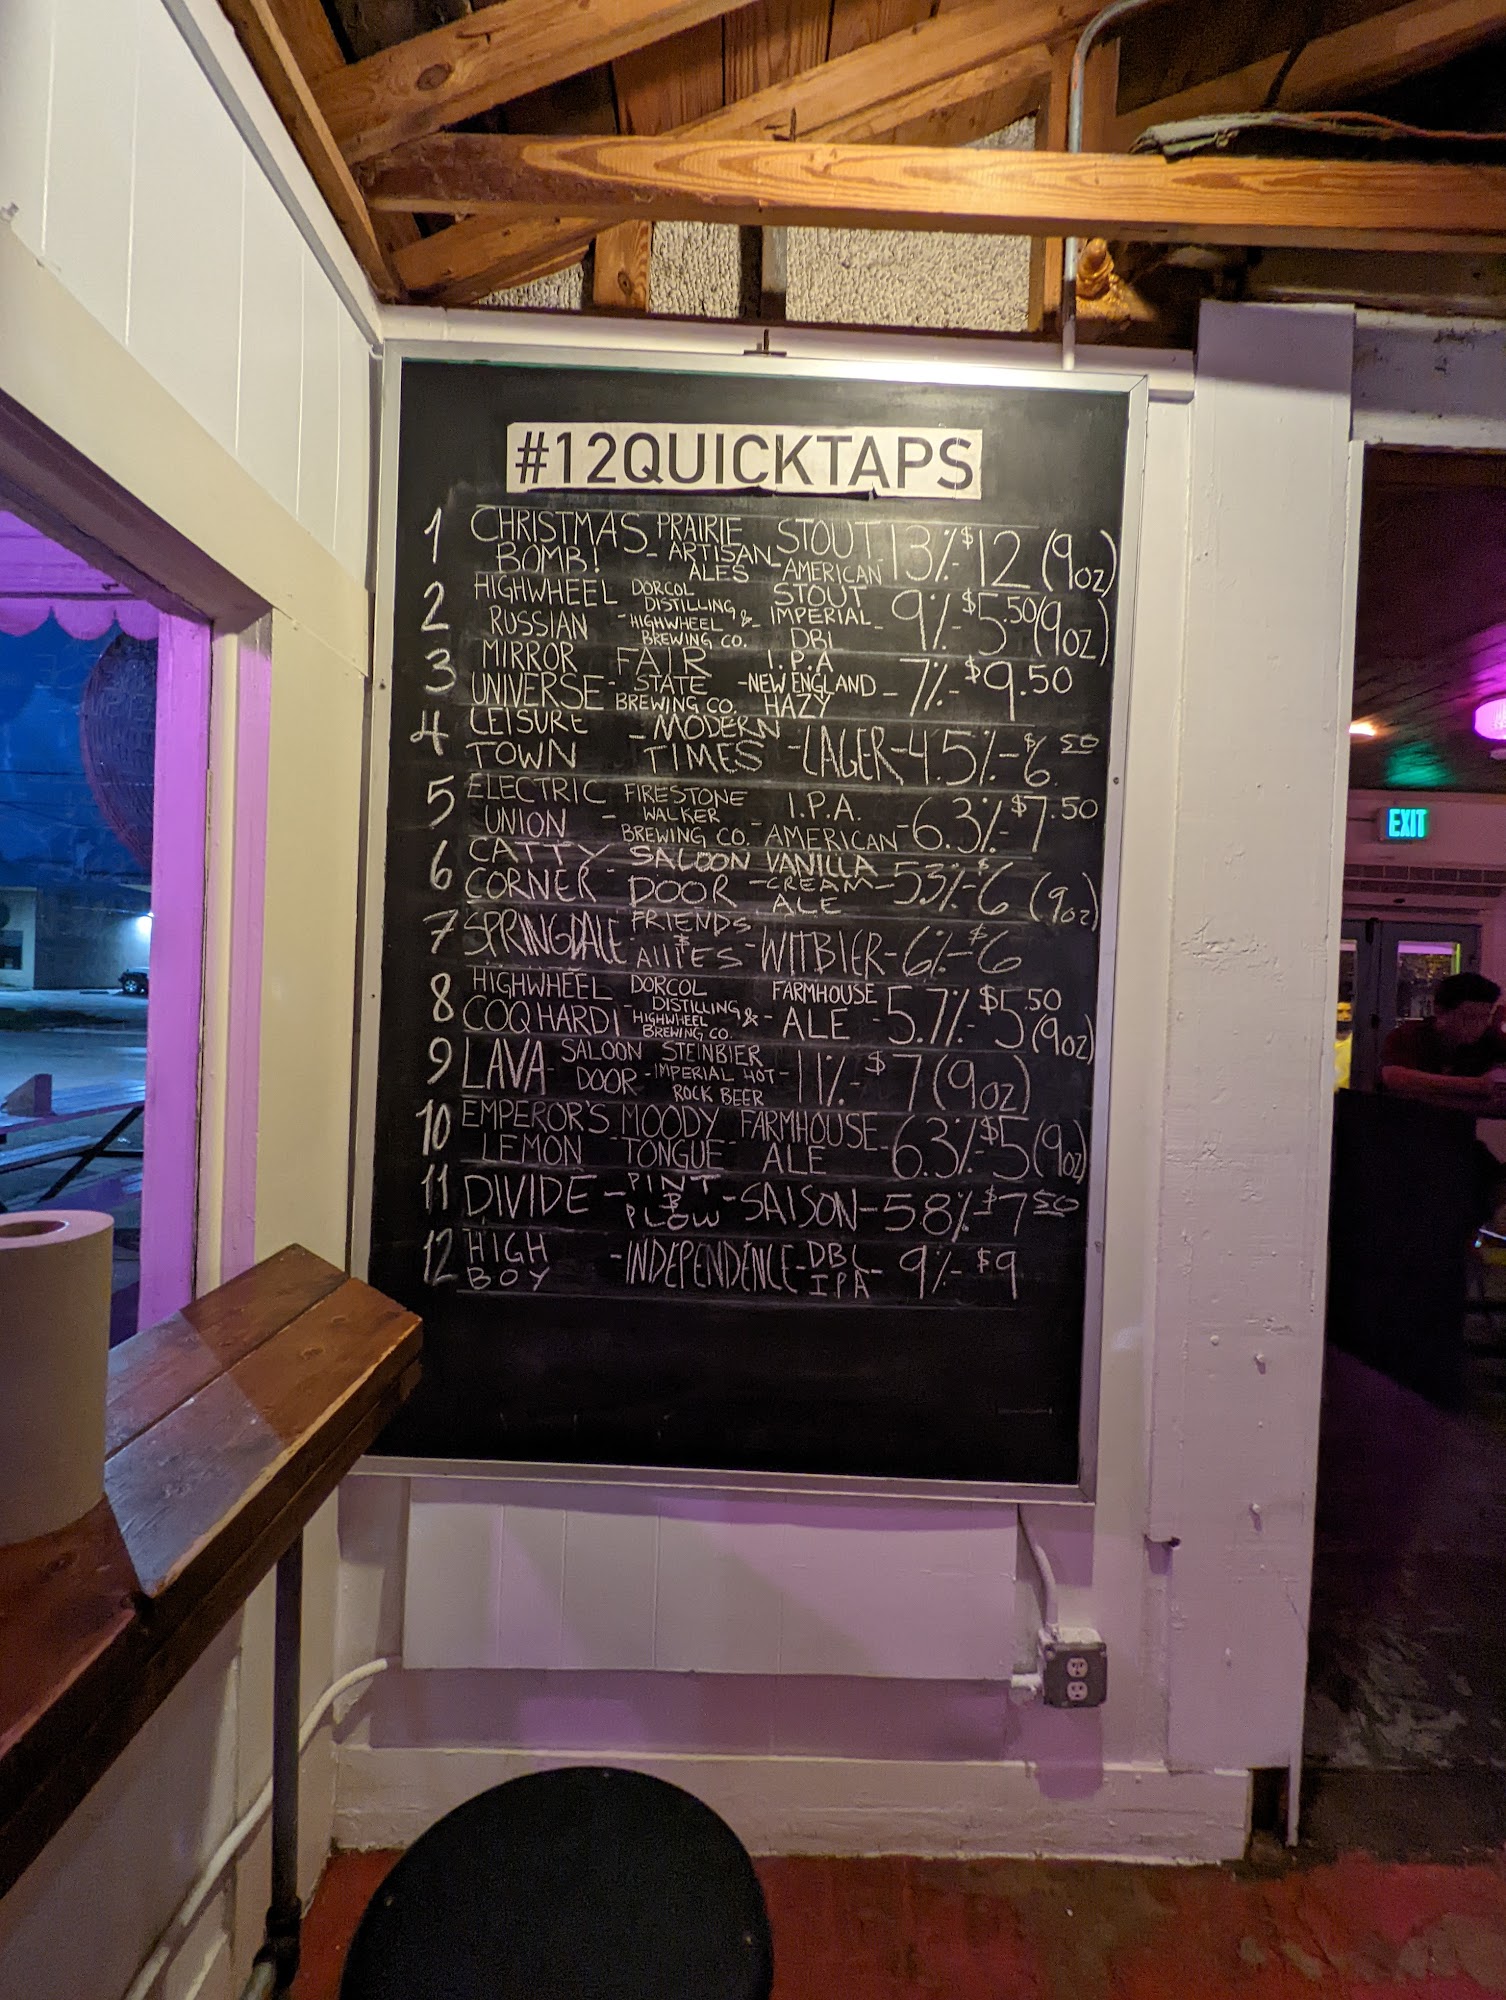 #12QUICKTAPS
1 CHRISTMAS BOMB! - PRAIRIE ARTISAN ALES - STOUT AMERICAN 13% $12 (9oz)
2 HIGHWHEEL RUSSIAN - DORCOL DISTILLING & HIGHWHEEL BREWING CO. - STOUT IMPERIAL DBL - 9% - $5.50 (9oz)
3 MIRROR UNIVERSE - FAIR STATE BREWING CO. - I.P.A NEW ENGLAND HAZY - 7% - $9.50
4 LEISURE TOWN - MODERN TIMES - LAGER - 4.5% - $6.50
5 ELECTRIC UNION - FIRESTONE WALKER BREWING CO. - I.P.A. AMERICAN - 6.3% - $7.50
6 CATTY CORNER - SALOON DOOR - VANILLA CREAM ALE - 5.3% - $6 (9oz)
7 SPRINGDALE - FRIENDS & AllIES - WITBIER - 6% - $6
8 HIGHWHEEL COQHARDI - DORCOL DISTILLING & HIGHWHEEL BREWING CO. - FARMHOUSE ALE - 5.7% - $5.50 (9oz)
9 LAVA - SALOON DOOR - STEINBIER IMPERIAL HOT ROCK BEER - 11% - $7 (9oz)
10 EMPEROR'S LEMON - MOODY TONGUE - FARMHOUSE ALE - 6.3% - $5 (9oz)
11 DIVIDE - PINT & PLOW - SAISON - 5.8% - $7.50
12 HIGH BOY - INDEPENDENCE - DBL I.P.A - 9% - $9
EXIT